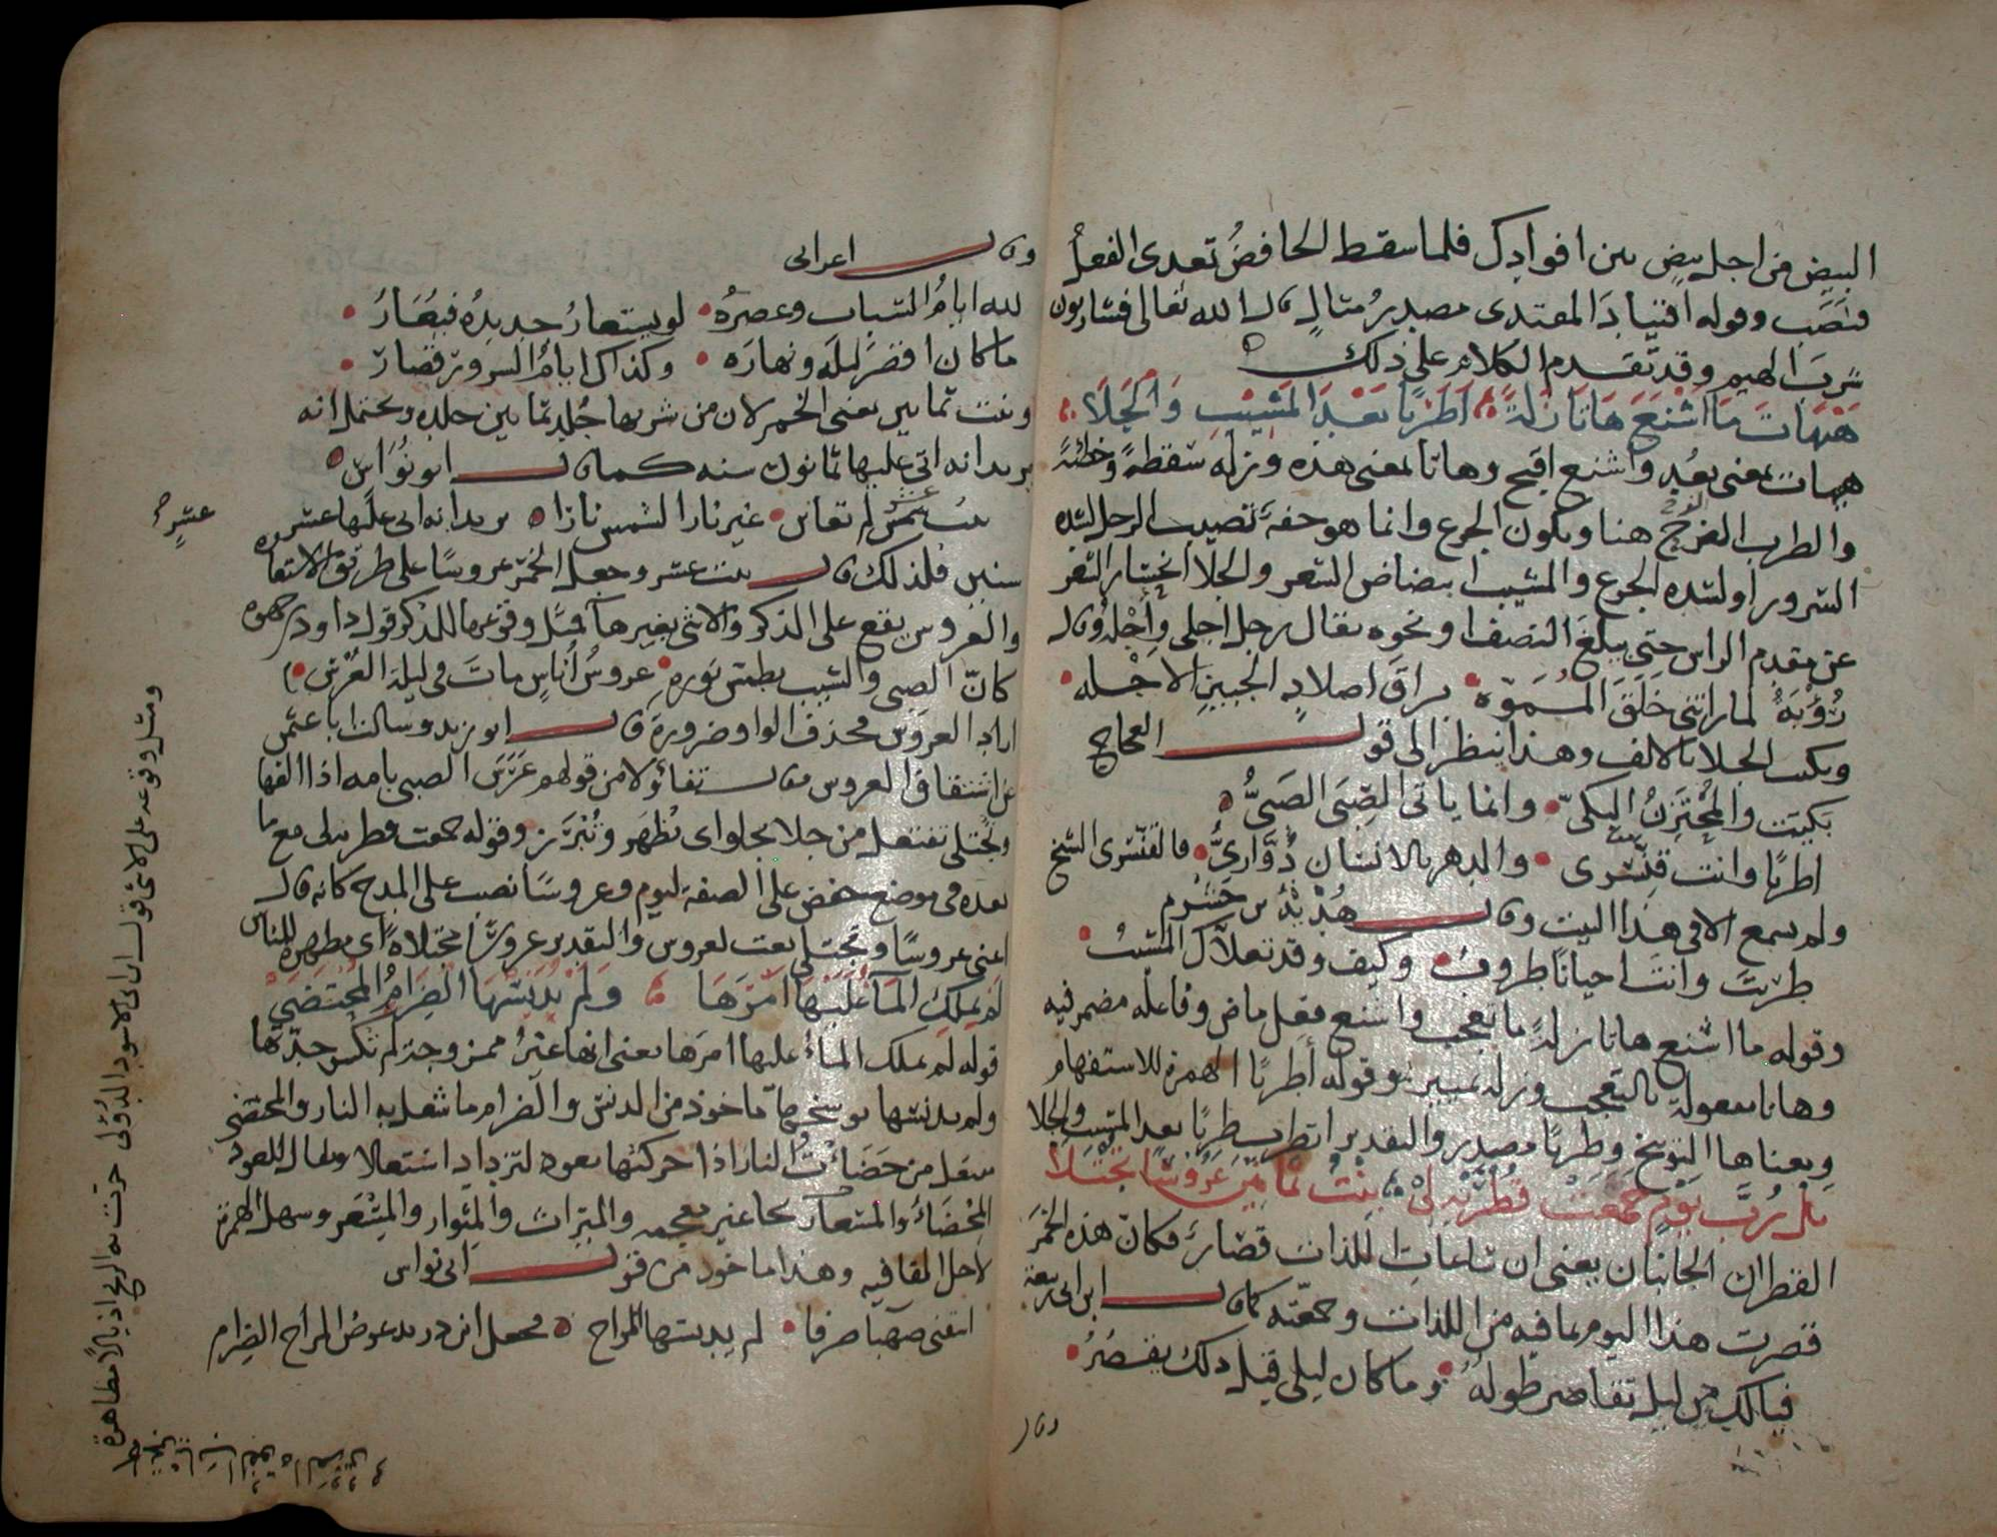 البيض من اجل بيض بين افوادك فلما سقط الخافض تعدى الفعل
فنصب وقوله اقتياد المعتدى مصدر مثال قال الله تعالى فشاربون
شرب الهيم وقد تقدم الكلام على ذلك
هَيْهَاتَ مَا اَشْنَعَ هَاتَا زَلَّةً اَطَرَبًا بَعْدَ المَشِيْبِ وَالْجَلَا
هيهات بمعنى بعُد واشنع اقبح وهاتا بمعنى هذه وزلة سقطة وخطئة
والطرب الفرح هنا ويكون الجزع وانما هو خفة تصيب الرجل لشدة
السرور او لشدة الجزع والمشيب ابيضاض الشعر والجلا انحسار الشعر
عن مقدم الراس حتى يبلغ النصف او نحوه يقال رجل اجلى واجله وقال
رُؤْبَةُ لما راتنى خلق المُمَوّه براق اصلاد الجبين الاجله
ويكتب الجلا بالالف وهذا ينظر الى قول العجاج
بكيت والمُحْتَزِنُ البكىّ وانما ياتى الصِّبَى الصَبىُّ
اطربًا وانت قِنَّسْرى والدهر بالانسان دُوَّارىُّ فالقنسرى الشيخ
ولم يسمع الا فى هذا البيت وقال هُدْبَةُ بن خَشْرم
طربْتَ وانت احيانًا طروبُ وكيف وقد تعلاّك المشيبُ
وقوله ما اشنع هاتا زلةً ما تعجب واشنع فعل ماض وفاعله مضمر فيه
وهاتا مفعولة بالتعجب وزلة تمييز وقوله أطربًا الهمزة للاستفهام
ومعناها التوبيخ وطربًا مصدر والتقدير اتطرب طربًا بعد المشيب والجلا
يا رُبَّ يومٍ جمعت قُطْرَيْهِ لِىْ بِنْتُ ثمانين عَرُوسًا تُجْتَلَا
القطران الجانبان يعنى ان ساعات اللذات قصار فكانّ هذه الخمر
قصرت هذا اليوم بما فيه من اللذات وجمعته كما قال ابن ابى ربيعة
فيالك من ليل تقاصر طولهُ وما كان ليلى قبل ذلك يقصُرُ
وقال
وقال اعرابى
لله ايامُ الشباب وعصرُهُ لو يستعارُ جديدُه فيُعَارُ
ما كان اقصرَ ليلَه ونهارَه وكذاك ايامُ السرور قصارُ
وبنت ثمانين يعنى الخمر لان من شربها جُلِد ثمانين جلدة ويحتمل انه
يريد انه اتى عليها ثمانون سنه كما قال ابو نُوَاسٍ
بنت عشر لم تعاين غير نار الشمس نارا يريد انه اتى عليها عشرة
عشرٍ صح
سنين فلذلك قال بنت عشر وجعل الخمر عروسًا على طريق الاستعارة
والعروس يقع على الذكر والانثى بغير هآ فمثل وقوعها للذكر قول داود بن جهوة
كانّ الصِبى والشيب يطمس نوره عروسُ اُناسٍ ماتَ فى ليلة العُرْسِ
اراد العروس فحذف الواو ضرورة قال ابو زيد وسالت ابا عثمن
عن اشتقاق العروس فقال تفائولا من قولهم عَرَسَ الصبى بامه اذا الفها
وتُجْتلى تفتعل من جلا يجلو اى تُظهَر وتُبْرَز وقوله جمعت قطريه لى مع ما
بعده فى موضع خفض على الصفة ليوم وعروسًا نصب على المدح كانه قال
اعنى عروسًا وتجتلى نعت لعروس والتقدير عروسًا مجتلاةً اى مظهرة للناس
لَمْ يَملِكِ المَآءُ عَلَيْهَا اَمْرَهَا وَلَمْ يُدَنِّسْهَا الضِرَامُ المُحْتَضَىْ
قوله لم يملك الماءُ عليها امرَها يعنى انها غيرُ ممزوجة لم تكسر حدّتها
ولم يدنسها يوسخها ماخوذ من الدنس والضرام ما شعل به النار والمحتضى
مفتعل من حَضَأتُ النارَ اذا حركتها بعود لتزداد اشتعالا ويقال للعود
المِحْضَأ والمسعار بحا غير معجمه والميراث والمِئوار والمِسْعَر وسهل الهمزة
لاجل القافيه وهذا ماخوذ من قول ابى نواس
اسقنى صهبآ صرفا لم يدنسها المزاج فجعل ابن دريد عوض المزاج الضرام
ومثل وقوعه على الانثى قول ابى الاسود الدؤلى جرت به الريح اذيالا مظاهرة